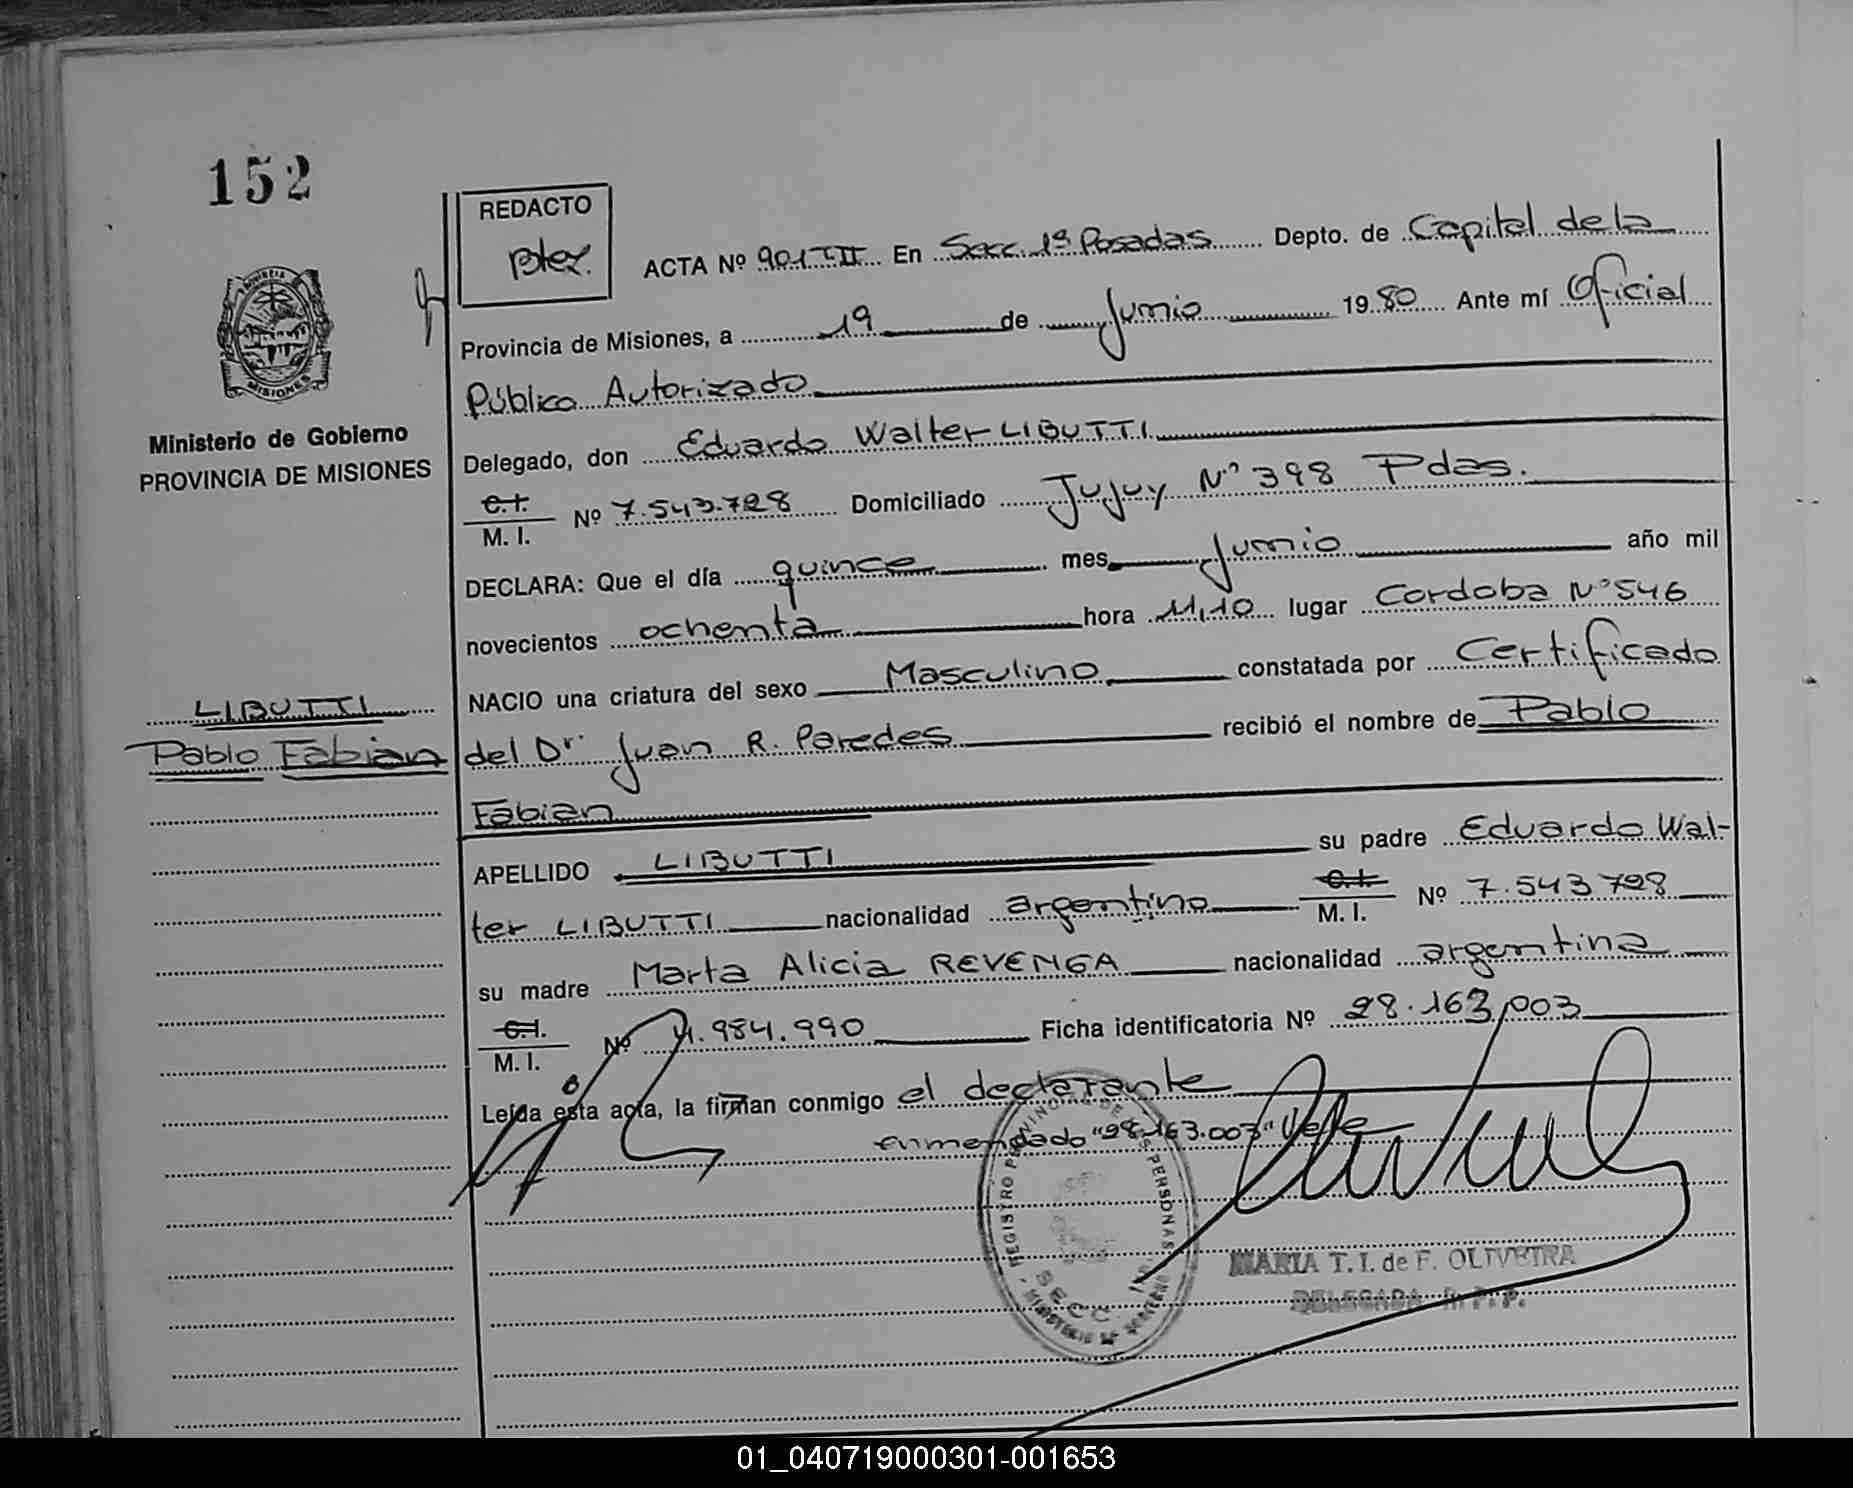 152
REDACTO
ACTA Nº 901 T II En Secc. 1ª Posadas Depto. de Capital de la
Provincia de Misiones, a 19 de Junio 1980 Ante mí Oficial
Público Autorizado
Ministerio de Gobierno
PROVINCIA DE MISIONES
Delegado, don Eduardo Walter LIBUTTI
C.I.
M. I. Nº 7.543.728 Domiciliado Jujuy Nº 398 Pdas.
DECLARA: Que el día quince mes Junio año mil
novecientos ochenta hora 11,10 lugar Cordoba Nº 546
NACIO una criatura del sexo Masculino constatada por Certificado
LIBUTTI
Pablo Fabian
del Dr. Juan R. Paredes recibió el nombre de Pablo
Fabian
APELLIDO LIBUTTI su padre Eduardo Wal-
ter LIBUTTI nacionalidad argentino C.I. M. I. Nº 7.543 728
su madre Marta Alicia REVENGA nacionalidad argentina
C.I.
M. I. Nº 4.984.990 Ficha identificatoria Nº 28.163,003
Leída esta acta, la firman conmigo el declarante
enmendado "28.163.003" Vale
REGISTRO PROVINCIAL DE LAS PERSONAS
SECC. 1RA.
MINISTERIO DE GOBIERNO
MARIA T. I. de F. OLIVEIRA
DELEGADA R. P. P.
01_040719000301-001653